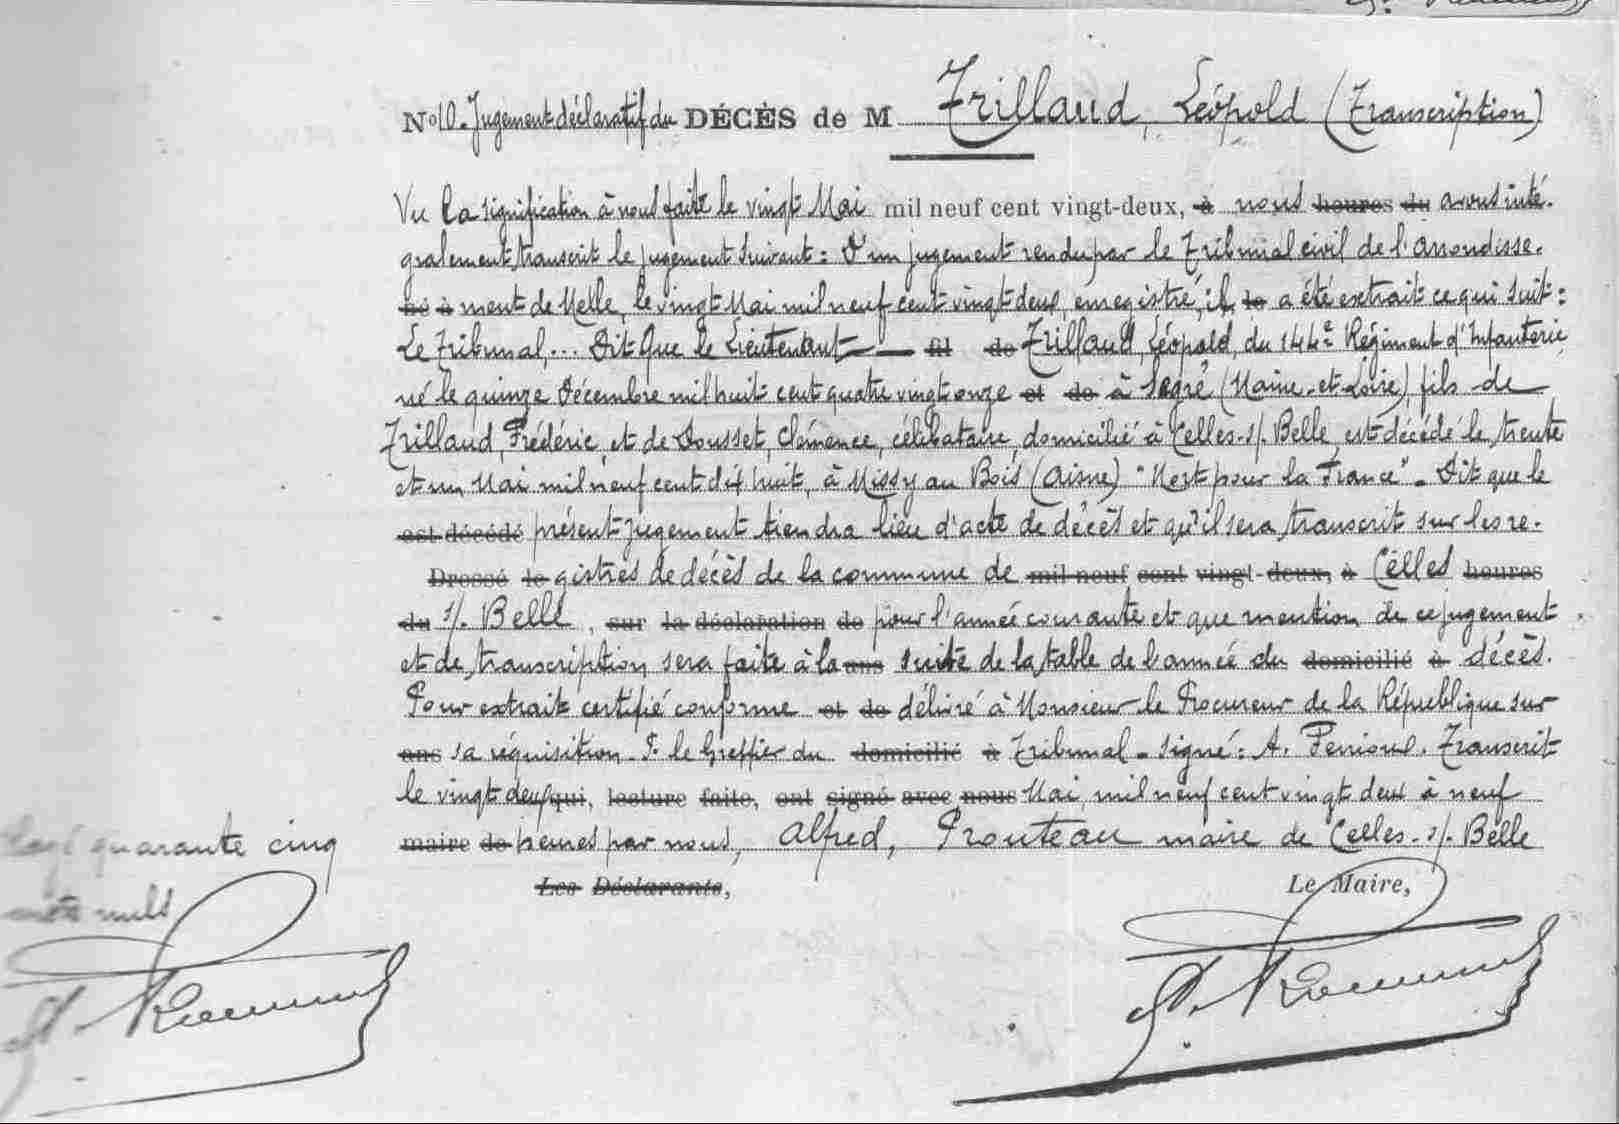 N° 10. Jugement déclaratif du DÉCÈS de M Trillaud, Léopold (Transcription)
Vu la signification à nous faite le vingt Mai mil neuf cent vingt-deux, à nous heures du avons inté-
gralement transcrit le jugement suivant : D'un jugement rendu par le Tribunal civil de l'arrondisse-
né à ment de Melle, le vingt Mai mil neuf cent vingt deux, enregistré, il le a été extrait ce qui suit :
Le Tribunal,... Dit Que le Lieutenant fil de Trillaud, Léopold, du 144e Régiment d'Infanterie
né le quinze Décembre mil huit cent quatre vingt onze et de à Segré (Maine-et-Loire), fils de
Trillaud, Frédéric, et de Dousset, Clémence, célibataire, domicilié à Celles-s/-Belle, est décédé le trente
et un Mai mil neuf cent dix huit, à Missy au Bois (Aisne) "Mort pour la France". Dit que le
est décédé présent jugement tiendra lieu d'acte de décès et qu'il sera transcrit sur les re-
Dressé le gistres de décès de la commune de mil neuf cent vingt-deux, à Celles heures
du s/. Belle, sur la déclaration de pour l'année courante et que mention de ce jugement
et de transcription sera faite à la ans suite de la table de l'année du domicilié à décès.
Pour extrait certifié conforme et de délivré à Monsieur le Procureur de la République sur
ans sa réquisition. P. le Greffier du domicilié à Tribunal. signé : A. Transcrit
le vingt deux qui, lecture faite, ont signé avec nous Mai, mil neuf cent vingt deux à neuf
maire de heures par nous, Alfred, Prouteau maire de Celles-s/-Belle
Les Déclarants,
Le Maire,
quarante cinq
mots nuls